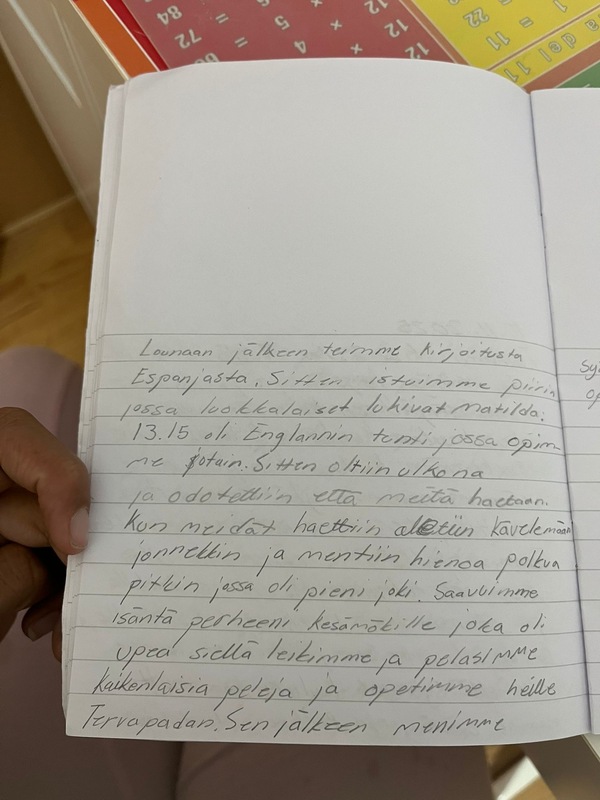 84
72
=
=
12
×
5
×
4
12
12
12
= 22
= 11
1
a del 11
Lounaan jälkeen teimme kirjoitusta
Espanjasta. Sitten istuimme piirin
jossa luokkalaiset lukivat matilda.
13.15 oli Englannin tunti jossa opim-
me jotain. Sitten oltiin ulkona
ja odotettiin että meitä haetaan.
Kun meidät haettiin alettiin kävelemään
jonnekkin ja mentiin hienoa polkua
pitkin jossa oli pieni joki. Saavuimme
isäntä perheeni kesämökille joka oli
upea siellä leikimme ja pelasimme
kaikenlaisia pelejä ja opetimme heille
Tervapadan. Sen jälkeen menimme